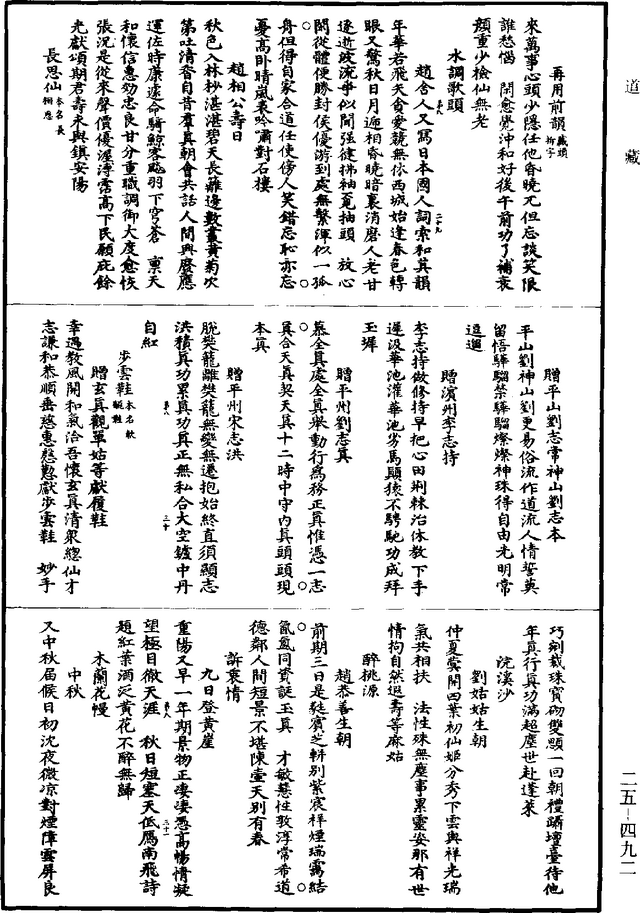 道藏
再用前韻 藏頭拆字
來萬事心頭少隱任他昏曉兀但忘談笑限
誰愁惱　閒愈覺沖和好後午前功了補衰
顏重少檢仙無老
水調歌頭
趙舍人又寫日本國人詞索和其韻
年華若飛天貪愛競無休西城始逢春色轉
眼又驚秋日月遞相昏曉暗裏消磨人老甘
遂逝波流爭似閒強健拂袖覓抽頭　放心
閒從體便勝封侯優游到處無繫渾似一孤
舟但得自家合道任使傍人笑錯忘恥亦忘
憂高卧晴嵐裏吟嘯對石樓
趙相公壽日
秋色入林杪湛湛碧天長籬邊數叢黃菊次
第吐清香自昔羣真朝會共話人間興廢應
運佐時康遽命騎鯨客飈羽下穹蒼　稟天
和懷信惠効忠良甘分重職調御大度愈恢
張況是從來聲價優渥清高下民願庇餘
光獻頌期君壽永與鎮安陽
長思仙 本名長相思
贈平山劉志常神山劉志本
平山劉神山劉更易俗流作道流人情誓莫
留悟驊騮禁驊騮燦燦神珠得自由光明常
逍遥
贈濱州李志持
李志持做修持早把心田荊棘治休教下手
遲汲華池灌華池劣馬顛猿不騁馳功成拜
玉墀
贈平州劉志真
慕全真處全真舉動行爲務正真惟憑一志
真合天真契天真十二時中守內真頭頭現
本真
贈平州宋志洪
脫樊籠離樊籠無變無遷抱始終直須顯志
洪積真功累真功真正無私合大空鑪中丹
自紅
步雲鞋 本名軟翻鞋
贈玄真觀單姑等獻履鞋
幸遇教風開和氣洽吾懷玄真清衆總仙才
志謙和恭順垂慈惠懃獻步雲鞋　妙手
巧剜裁珠寶砌雙顋一回朝禮躡壇臺待他
年真行真功滿超塵世赴蓬萊
浣溪沙
劉姑姑生朝
仲夏蓂開四葉初仙姬分秀下雲輿祥光瑞
氣共相扶　法性殊無塵事累靈姿那有世
情拘自然遐壽等麻姑
醉桃源
趙恭善生朝
前期三日是蕤賓芝軿別紫宸祥煙瑞靄結
氤氳同資誕玉真　才敏慧性敦淳常希道
德鄰人間短景不堪陳壺天別有春
訴衷情
九日登黃崖
重陽又早一年期景物正凄凄憑高暢情凝
望極目徹天涯　秋日短塞天低鴈南飛詩
題紅葉酒泛黃花不醉無歸
木蘭花慢
中秋
又中秋屆候日初沈夜微凉對煙障雲屏良
二五—四九二